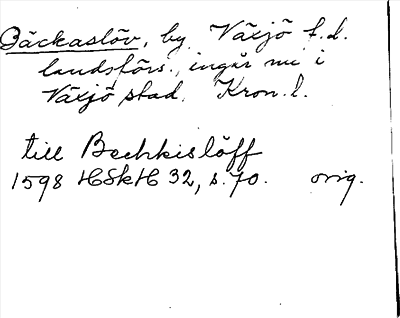 Bäckaslöv, by Växjö f.d.
landsförs., ingår nu i
Växjö stad. Kron. l.
till Bechkislöff
1598 HSkH 32, s. 70. orig.